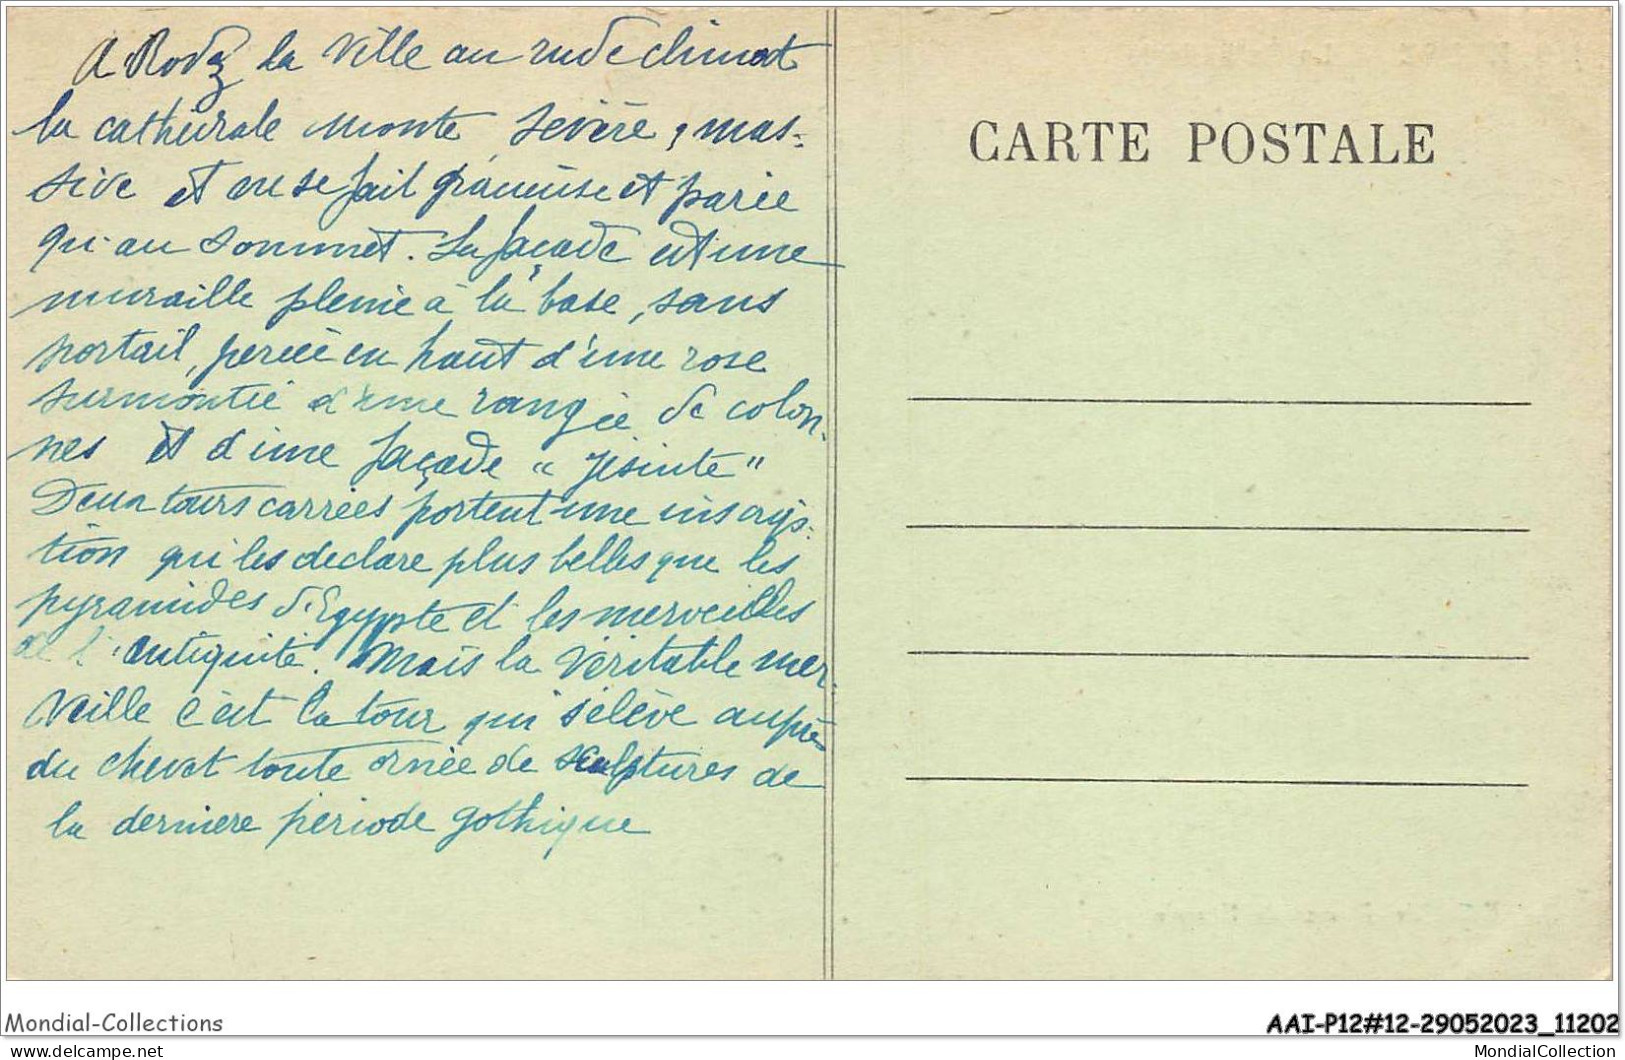 A Rodez la ville au rude climat
la cathédrale monte, sévère, mas-
sive et ne se fait gracieuse et parée
qu'au sommet. La façade est une
muraille pleine à la base, sans
portail, percée en haut d'une rose
surmontée d'une rangée de colon-
nes et d'une façade "Jésuite"
Deux tours carrées portent une inscrip-
tion qui les declare plus belles que les
pyramides d'Egypte et les merveilles
de l'antiquité. Mais la véritable mer-
veille c'est la tour qui s'élève auprès
du chevet toute ornée de sculptures de
la derniere période gothique
CARTE POSTALE
Mondial-Collections
AAI-P12#12-29052023_11202
www.delcampe.net
MondialCollection